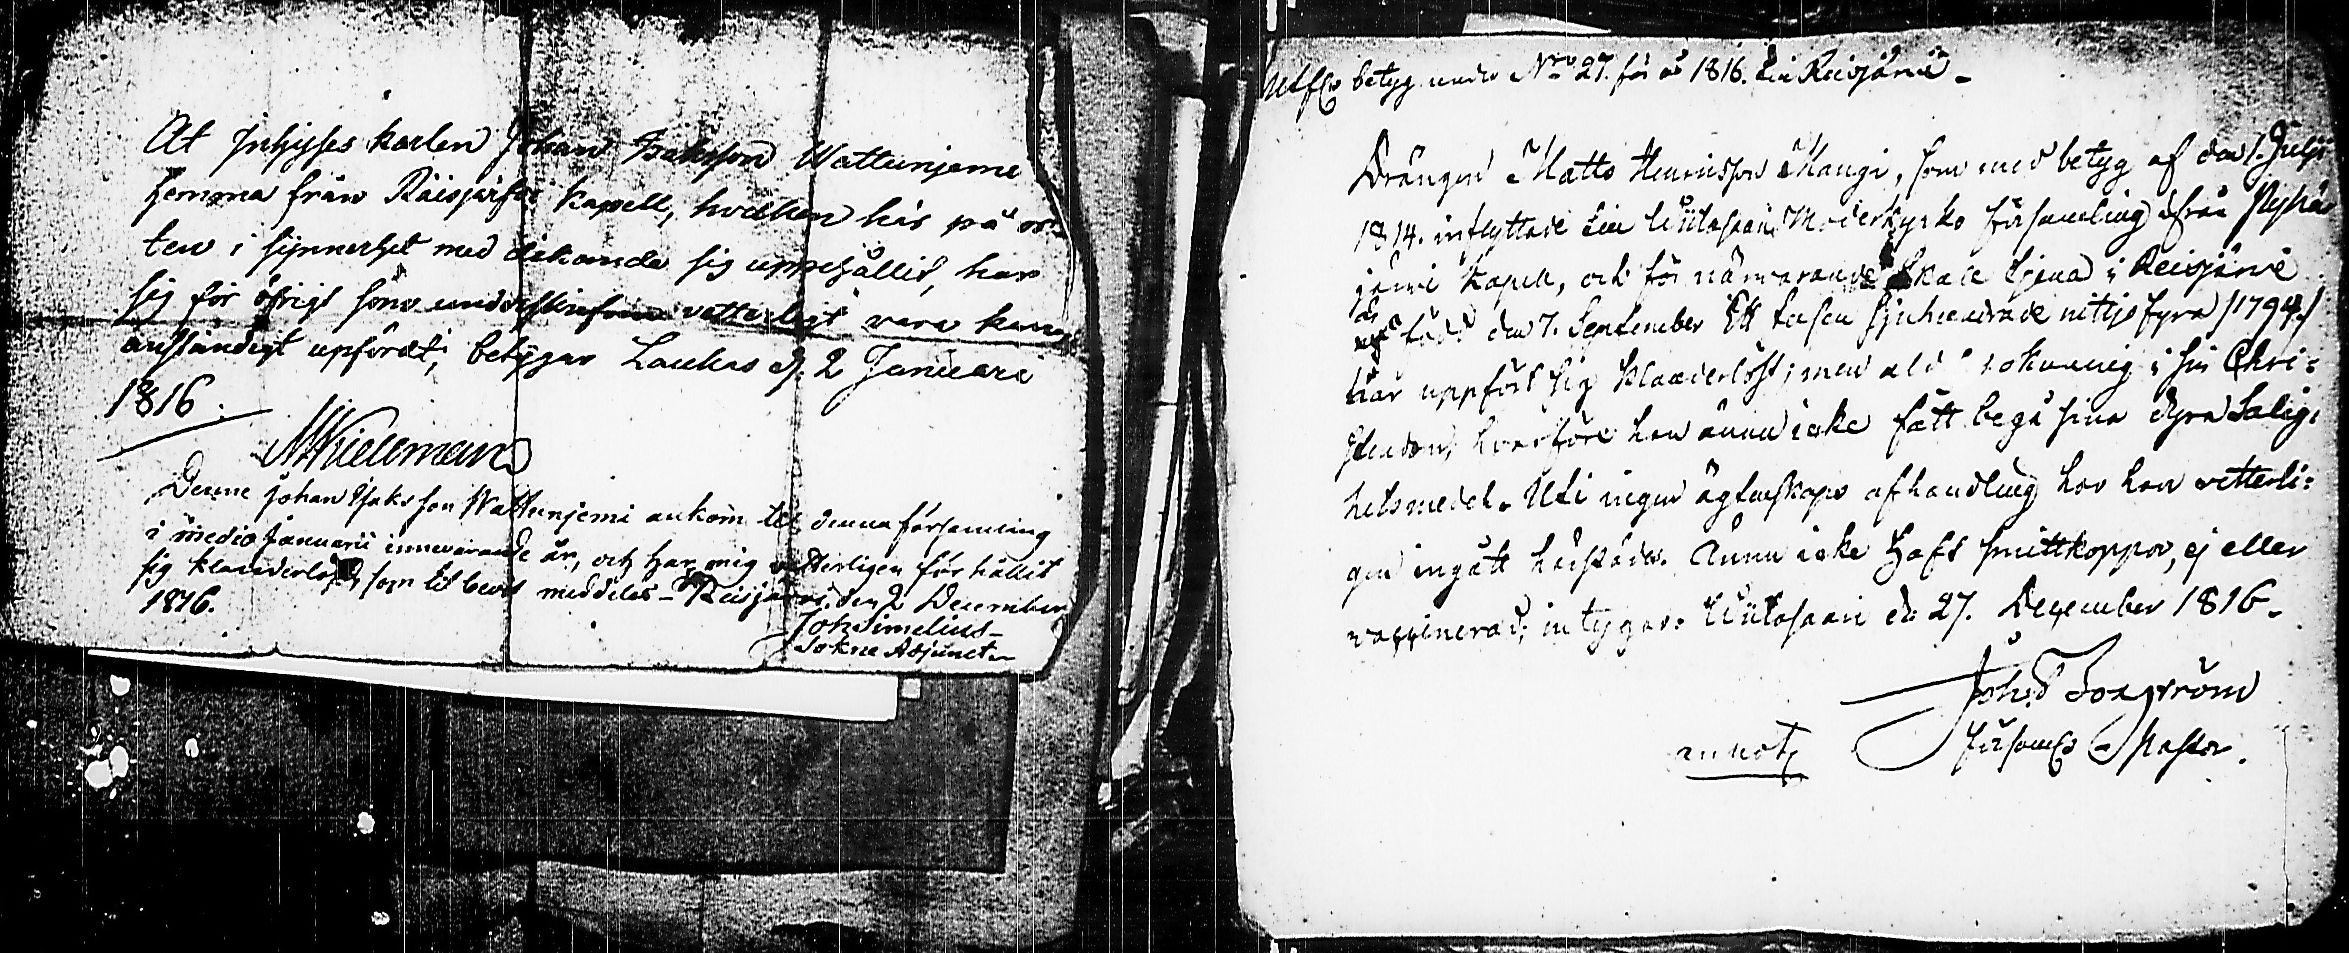 At Inhysses karlen Johan Isaksson Wattunjeme
hemma från Räisjärfvi kapell, hvilken här på or-
ten i synnerhet med dikande sig uppehållit, har
sig för öfrigt som vetterligt vara kan
anständigt upfördt; betygar Laukas d. 2 Januarii
1816.
Denne Johan Isaksson Wattunjemi ankom til denna församling
i medio Januarii innevarande år, och har mig vetterligen förhållit
sig klanderlöst, som til bevis meddelas - Reisjärvi den 2 December
1816.
Joh Simelius -
Sokne Adjunct.
Utfl. betyg under Nro 27. för år 1816. till Reisjärvi -
Drängen Matts Henriksson Kangi, som med betyg af den 1. Julii
1814. inflyttade till Wiitasaari Moderkyrko församling ifrån Pyhä-
järvi Kapell, och för närvarande skall tjena i Reisjärvi
är född den 7. September Ett tusen sjuhundrade nittjo fyra /1794./
har uppfört sig klanderlöst; men okunnig i sin Chri-
stendom, hvarföre han ännu icke fått begå sina dyra Salig-
hetsmedel. Uti ingen ägtenskaps afhandling har han vetterli-
gen ingått härstädes. Ännu icke haft smittkoppor, ej eller
vaccinerad; intygar. Wiitasaari d. 27. December 1816.
Joh.
Församl. Pastor.
annot.